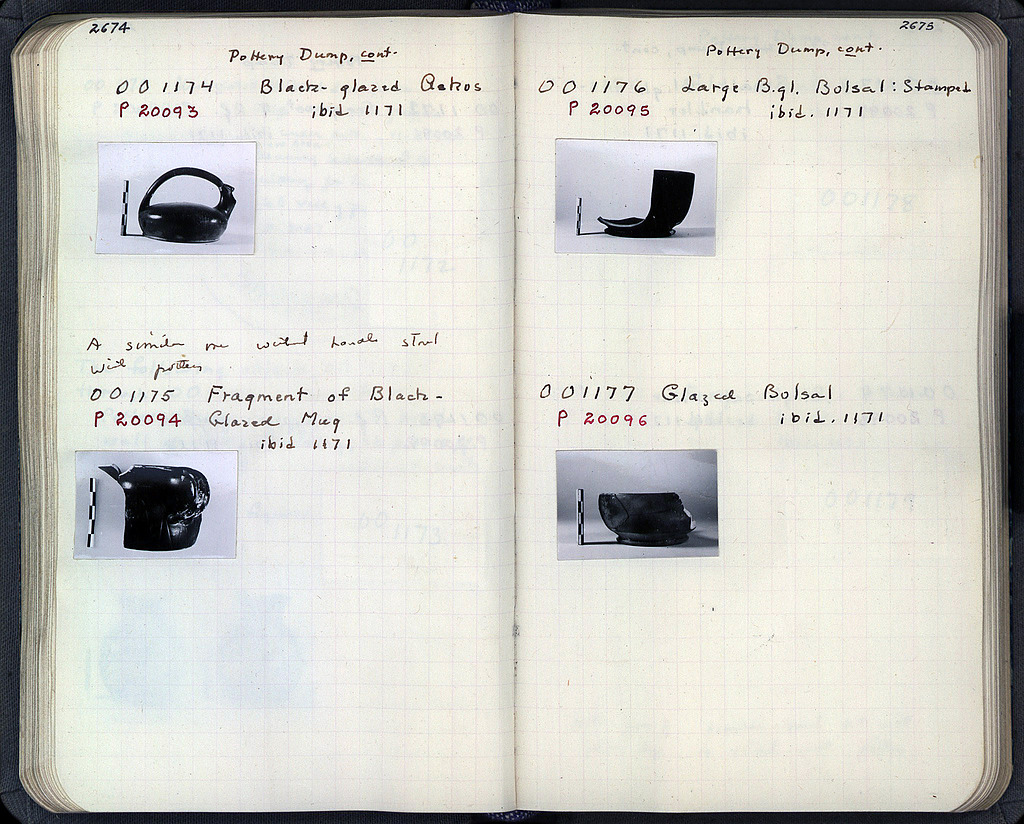 2674
Pottery Dump, cont.
OO 1174 Black-glazed Askos
P 20093 ibid 1171
A similar one without handle stored
with pottery.
OO 1175 Fragment of Black-
P 20094 Glazed Mug
ibid 1171
2675
Pottery Dump, cont.
OO 1176 Large B.gl. Bolsal: Stamped
P 20095 ibid. 1171
OO 1177 Glazed Bolsal
P 20096 ibid. 1171